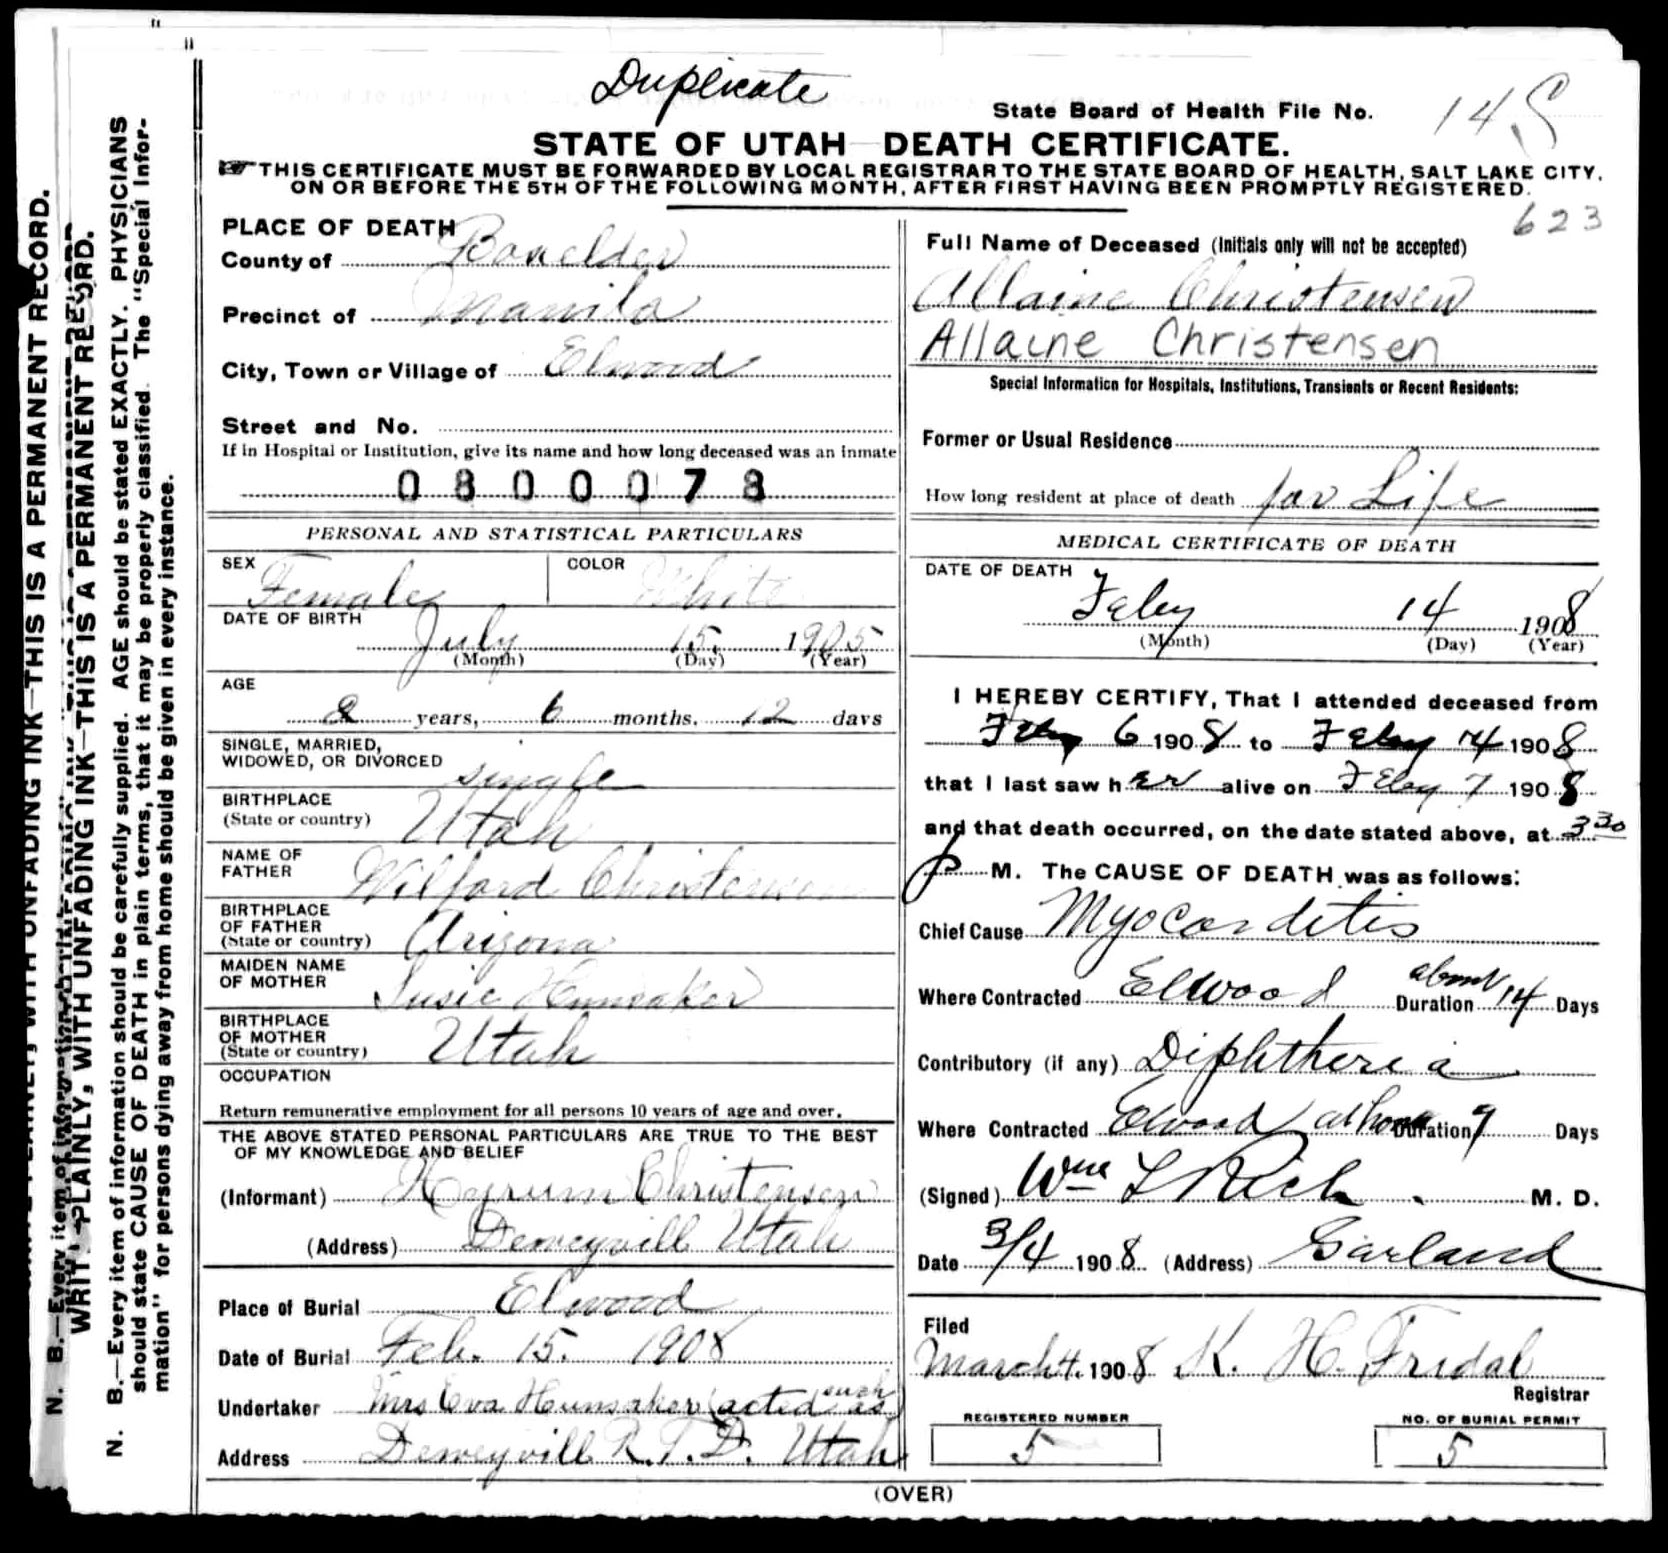 Duplicate
State Board of Health File No. 14
STATE OF UTAH—DEATH CERTIFICATE.
THIS CERTIFICATE MUST BE FORWARDED BY LOCAL REGISTRAR TO THE STATE BOARD OF HEALTH, SALT LAKE CITY,
ON OR BEFORE THE 5TH OF THE FOLLOWING MONTH, AFTER FIRST HAVING BEEN PROMPTLY REGISTERED.
623
PLACE OF DEATH
County of Boxelder
Precinct of Manila
City, Town or Village of Elwood
Street and No.
If in Hospital or Institution, give its name and how long deceased was an inmate
0800078
PERSONAL AND STATISTICAL PARTICULARS
SEX Female COLOR White
DATE OF BIRTH
July 15. 1905
(Month) (Day) (Year)
AGE
2 years, 6 months, 12 days
SINGLE, MARRIED,
WIDOWED, OR DIVORCED single
BIRTHPLACE
(State or country) Utah
NAME OF
FATHER Wilford Christensen
BIRTHPLACE
OF FATHER
(State or country) Arizona
MAIDEN NAME
OF MOTHER Susie Hunsaker
BIRTHPLACE
OF MOTHER
(State or country) Utah
OCCUPATION
Return remunerative employment for all persons 10 years of age and over.
THE ABOVE STATED PERSONAL PARTICULARS ARE TRUE TO THE BEST
OF MY KNOWLEDGE AND BELIEF
(Informant) Hyrum Christensen
(Address) Deweyvill Utah
Place of Burial Elwood
Date of Burial Feb. 15. 1908
Undertaker Mrs Eva Hunsaker (acted as such)
Address Deweyvill R.F.D. Utah
Full Name of Deceased (Initials only will not be accepted)
Allaine Christensen
Allaine Christensen
Special Information for Hospitals, Institutions, Transients or Recent Residents:
Former or Usual Residence
How long resident at place of death for Life
MEDICAL CERTIFICATE OF DEATH
DATE OF DEATH
Feby 14 1908
(Month) (Day) (Year)
I HEREBY CERTIFY, That I attended deceased from
Feby 6 1908 to Feby 14 1908
that I last saw her alive on Feby 7 1908
and that death occurred, on the date stated above, at 3 30
P M. The CAUSE OF DEATH was as follows:
Chief Cause Myocarditis
Where Contracted Elwood Duration about 14 Days
Contributory (if any) Diphtheria
Where Contracted Elwood at home Duration 9 Days
(Signed) Wm L Rich M. D.
Date 3/4 1908 (Address) Garland
Filed
March 4. 1908 K. H. Fridal
Registrar
REGISTERED NUMBER
5
NO. OF BURIAL PERMIT
5
(OVER)
WRITE PLAINLY, WITH UNFADING INK—THIS IS A PERMANENT RECORD.
N. B.—Every item of information should be carefully supplied. AGE should be stated EXACTLY. PHYSICIANS
should state CAUSE OF DEATH in plain terms, that it may be properly classified. The "Special Infor-
mation" for persons dying away from home should be given in every instance.